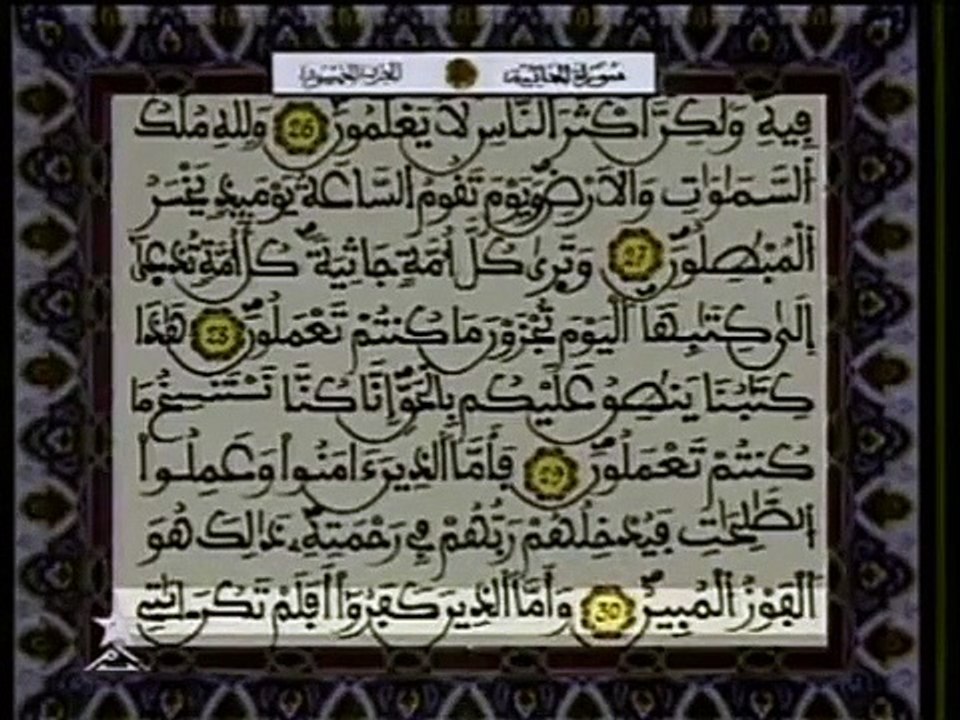 سورة الجاثية الحزب الخمسون
فِيهِ وَلَٰكِنَّ أَكْثَرَ اَلنَّاسِ لَا يَعْلَمُونَ 26 وَلِلهِ مُلْكُ
اُلسَّمَٰوَٰتِ وَالَارْضِ وَيَوْمَ تَقُومُ السَّاعَةُ يَوْمَئِذٍ يَخْسَرُ
اُلْمُبْطِلُونَ 27 وَتَرَىٰ كُلَّ أُمَّةٍ جَاثِيَةً كُلُّ أُمَّةٍ تُدْعَىٰ
إِلَىٰ كِتَٰبِهَا اَلْيَوْمَ تُجْزَوْنَ مَا كُنتُمْ تَعْمَلُونَ 28 هَٰذَا
كِتَٰبُنَا يَنطِقُ عَلَيْكُم بِالْحَقِّ إِنَّا كُنَّا نَسْتَنسِخُ مَا
كُنتُمْ تَعْمَلُونَ 29 فَأَمَّا اَلذِينَ ءَامَنُوا وَعَمِلُوا
اُلصَّٰلِحَٰتِ فَيُدْخِلُهُمْ رَبُّهُمْ فِي رَحْمَتِهِ ذَٰلِكَ هُوَ
اَلْفَوْزُ الْمُبِينُ 30 وَأَمَّا اَلذِينَ كَفَرُوا أَفَلَمْ تَكُنَ ايَٰتِي